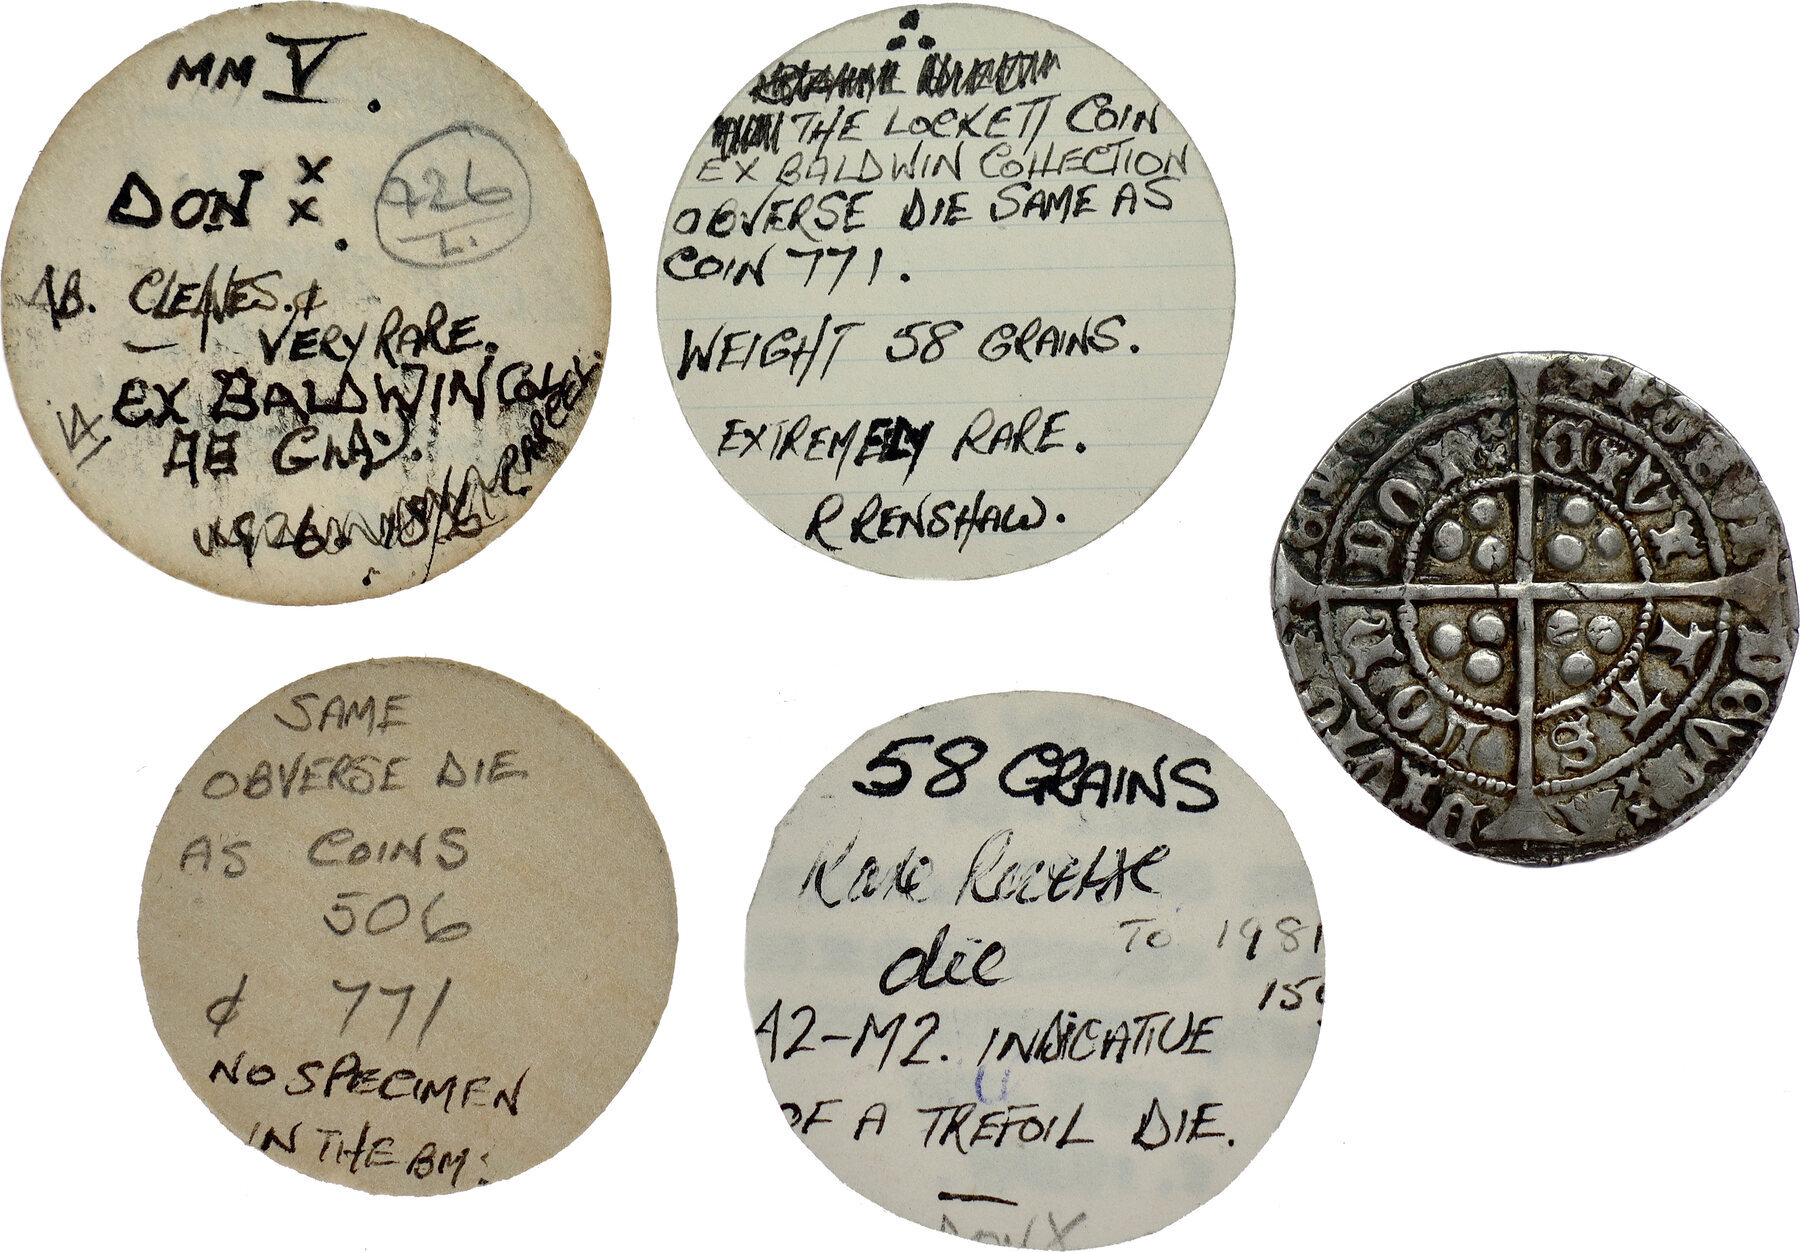 MM V.
DON ××.
926
L.
AB. CLEAVES. ¢
VERY RARE.
EX BALDWIN COLL
THE LOCKETT COIN
EX BALDWIN COLLECTION
OBVERSE DIE SAME AS
COIN 771.
WEIGHT 58 GRAINS.
EXTREMELY RARE.
R RENSHAW.
SAME
OBVERSE DIE
AS COINS
506
¢ 771
NO SPECIMEN
IN THE BM:
58 GRAINS
Rare
die
TO 1981
A2-M2. INDICATIVE
OF A TREFOIL DIE.
DON X
CIVI
TAS
LON
DON